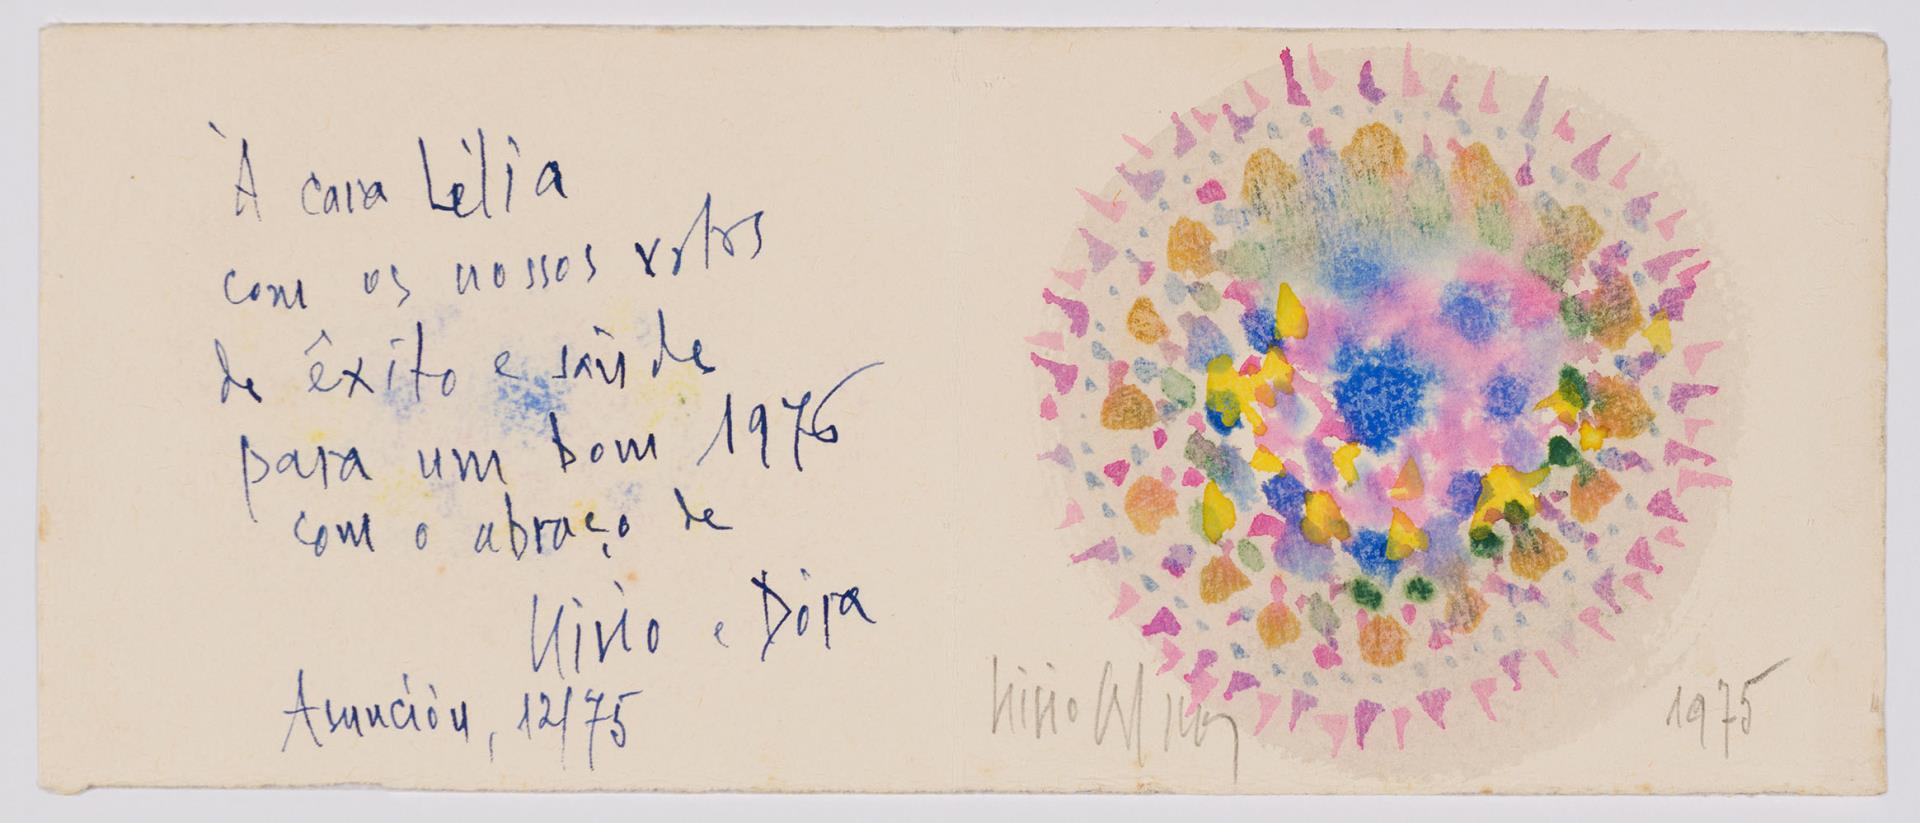 À cara Lélia
com os nossos votos
de êxito e saúde
para um bom 1976
com o abraço de
Lívio e Dóra
Asunción, 12/75
Lívio 1975